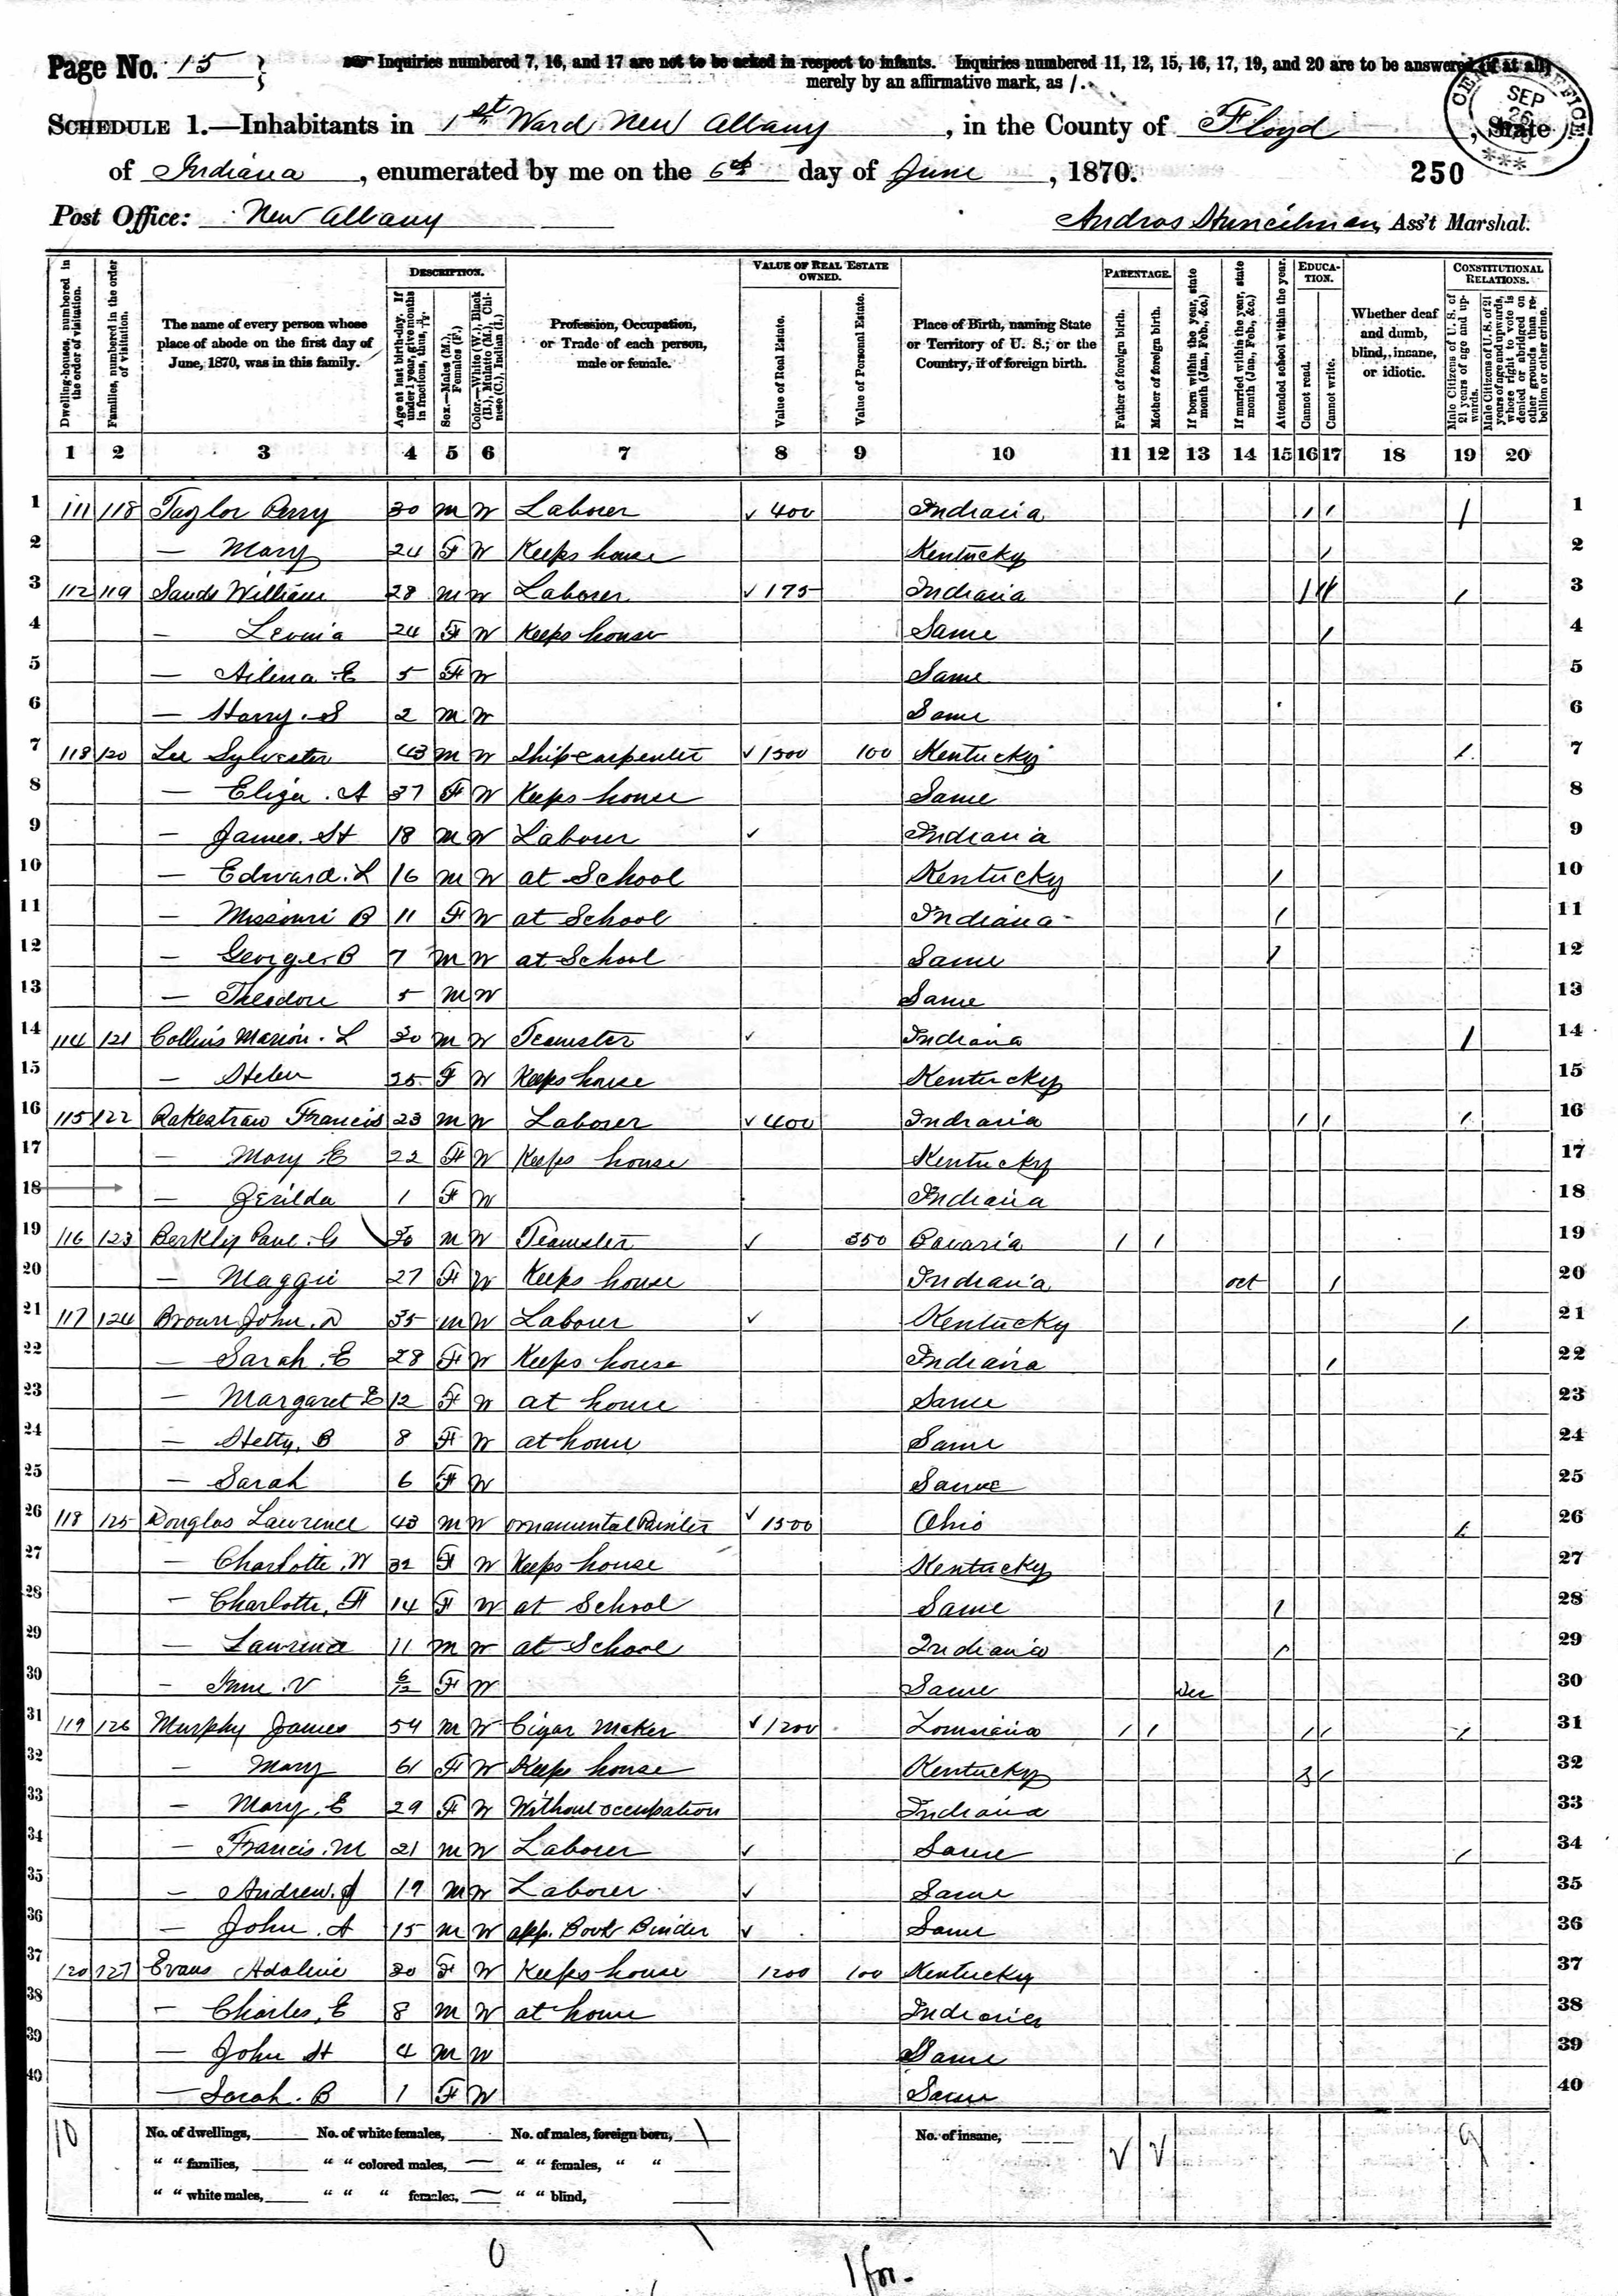 Page No. 15 } Inquiries numbered 7, 16, and 17 are not to be asked in respect to infants. Inquiries numbered 11, 12, 15, 16, 17, 19, and 20 are to be answered (if at all)
merely by an affirmative mark, as /.
CENSUS OFFICE SEP 26 ***
SCHEDULE 1.—Inhabitants in 1st Ward New Albany, in the County of Floyd, State
of Indiana, enumerated by me on the 6th day of June, 1870. 250
Post Office: New Albany Ass't Marshal.
DESCRIPTION. VALUE OF REAL ESTATE OWNED. PARENTAGE. EDUCATION. CONSTITUTIONAL RELATIONS.
Dwelling-houses, numbered in the order of visitation.
Families, numbered in the order of visitation.
The name of every person whose place of abode on the first day of June, 1870, was in this family.
Age at last birth-day. If under 1 year, give months in fractions, thus, 3/12
Sex.—Males (M.), Females (F.)
Color.—White (W.), Black (B.), Mulatto (M.), Chinese (C.), Indian (I.)
Profession, Occupation, or Trade of each person, male or female.
Value of Real Estate.
Value of Personal Estate.
Place of Birth, naming State or Territory of U. S.; or the Country, if of foreign birth.
Father of foreign birth.
Mother of foreign birth.
If born within the year, state month (Jan., Feb., &c.)
If married within the year, state month (Jan., Feb., &c.)
Attended school within the year.
Cannot read.
Cannot write.
Whether deaf and dumb, blind, insane, or idiotic.
Male Citizens of U. S. of 21 years of age and upwards.
Male Citizens of U. S. of 21 years of age and upwards, whose right to vote is denied or abridged on other grounds than rebellion or other crime.
1 2 3 4 5 6 7 8 9 10 11 12 13 14 15 16 17 18 19 20
1 111 118 Taylor Perry 30 M W Laborer ✓ 400 Indiana / / / 1
2 — Mary 24 F W Keeps house Kentucky / 2
3 112 119 Sands William 28 M W Laborer ✓ 175 Indiana / / / 3
4 — 24 F W Keeps house Same / 4
5 — E 5 F W Same 5
6 — Harry. S 2 M W Same 6
7 113 120 Lee Sylvester 43 M W Ship carpenter ✓ 1500 100 Kentucky / 7
8 — Eliza. A 37 F W Keeps house Same 8
9 — James. H 18 M W Laborer ✓ Indiana 9
10 — Edward. L 16 M W at School Kentucky / 10
11 — Missouri B 11 F W at School Indiana / 11
12 — George. B 7 M W at School Same / 12
13 — Theodore 5 M W Same 13
14 114 121 Collins Marion. L 30 M W Teamster ✓ Indiana / 14
15 — Helen 25 F W Keeps house Kentucky 15
16 115 122 Rakestraw Francis 23 M W Laborer ✓ 400 Indiana / / / 16
17 — Mary E 22 F W Keeps house Kentucky 17
18 — Jerilda 1 F W Indiana 18
19 116 123 Paul. G 30 M W Teamster ✓ 350 Bavaria / / 19
20 — Maggie 27 F W Keeps house Indiana oct / 20
21 117 124 Brown John. D 35 M W Laborer ✓ Kentucky / 21
22 — Sarah. E 28 F W Keeps house Indiana / 22
23 — Margaret E 12 F W at home Same 23
24 — Hetty. B 8 F W at home Same 24
25 — Sarah 6 F W Same 25
26 118 125 Douglas Lawrence 43 M W ornamental Painter ✓ 1500 Ohio / 26
27 — Charlotte. W 32 F W Keeps house Kentucky 27
28 — Charlotte. F 14 F W at School Same / 28
29 — 11 M W at School Indiana / 29
30 — V 6/12 F W Same Dec 30
31 119 126 Murphy James 54 M W Cigar Maker ✓ 1200 Louisiana / / / / / 31
32 — Mary 61 F W Keeps house Kentucky / 32
33 — Mary. E 29 F W Without occupation Indiana 33
34 — Francis. M 21 M W Laborer ✓ Same / 34
35 — Andrew. J 19 M W Laborer ✓ Same 35
36 — John. A 15 M W app. Book Binder ✓ Same 36
37 120 127 Evans Adaline 30 F W Keeps house 1200 100 Kentucky 37
38 — Charles. E 8 M W at home Indiana 38
39 — John H 4 M W Same 39
40 — Sarah. B 1 F W Same 40
10 No. of dwellings, No. of white females, No. of males, foreign born, \ No. of insane, 9
" " families, " " colored males, — " " females, " " √ √
" " white males, " " " females, — " " blind,
0 1 for.